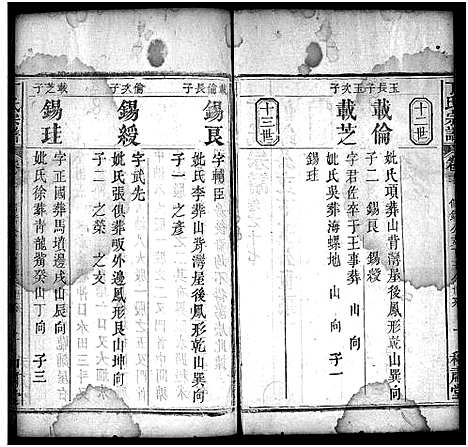 十二世
玉長子
載倫
妣氏項葬山背灣屋後鳳形乾山巽向
子二 錫良 錫綬
玉次子
載芝
字君佐卒于王事葬
妣氏吳葬海螺地 山 向 子一
錫珪
十三世
載倫長子
錫良
字輔臣
妣氏李葬山背灣屋後鳳形乾山巽向
子一 之彥
倫次子
錫綬
字武先
妣氏張俱葬畈外邊鳳形艮山坤向
子二 之榮 之文
載芝子
錫珪
字正國葬馬墳邊戌山辰向
妣氏徐葬青龍嘴癸山丁向 子三
氏宗譜